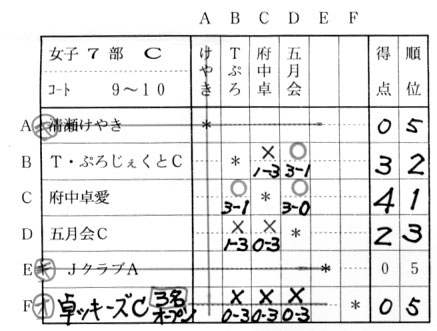 A B C D E F
女子7部 C けやき Tぷろ 府中卓 五月会 得点 順位
コート 9～10
A 清瀬けやき * 0 5
B T・ぷろじぇくとC * × 1-3 ○ 3-1 3 2
C 府中卓愛 ○ 3-1 * ○ 3-0 4 1
D 五月会C × 1-3 × 0-3 * 2 3
E キ JクラブA * 0 5
F 卓ッキーズC 3名オープン × 0-3 × 0-3 × 0-3 * 0 5